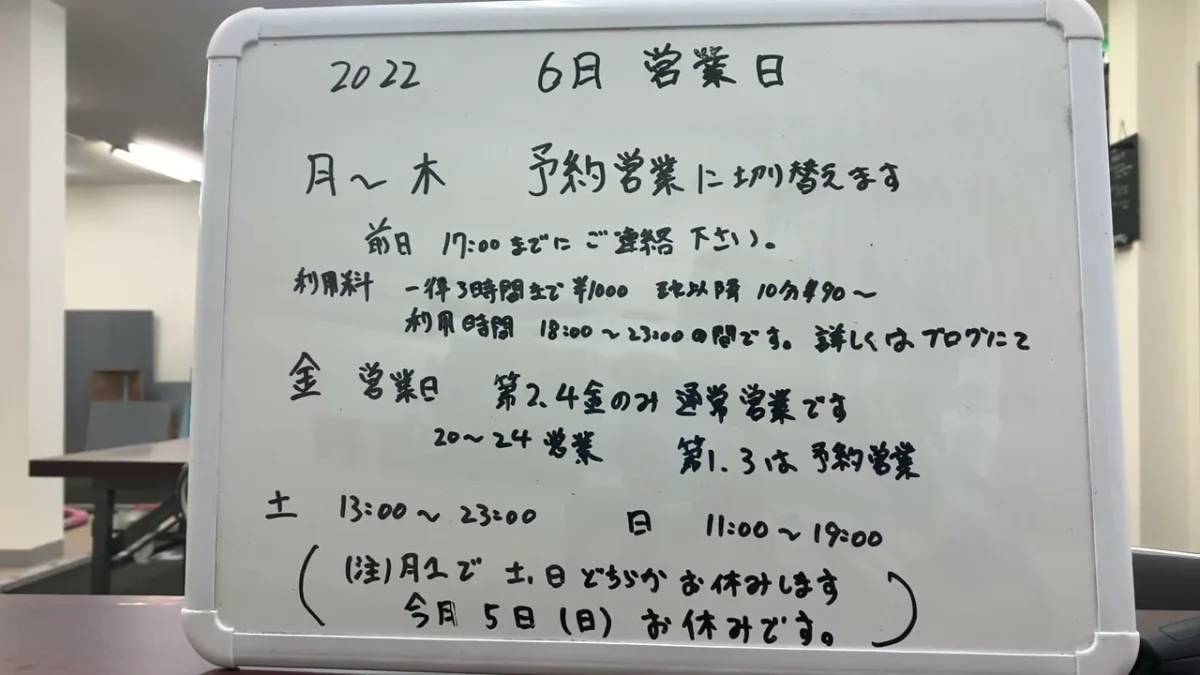 2022 6月 営業日
月～木 予約営業に切り替えます
前日 17:00までにご連絡下さい。
利用料 一律3時間まで¥1000 それ以降 10分¥90～
利用時間 18:00～23:00の間です。詳しくはブログにて
金 営業日 第2.4金のみ 通常営業です
20～24営業 第1.3は予約営業
土 13:00～23:00 日 11:00～19:00
(注)月1で 土、日どちらかお休みします
今月 5日(日)お休みです。